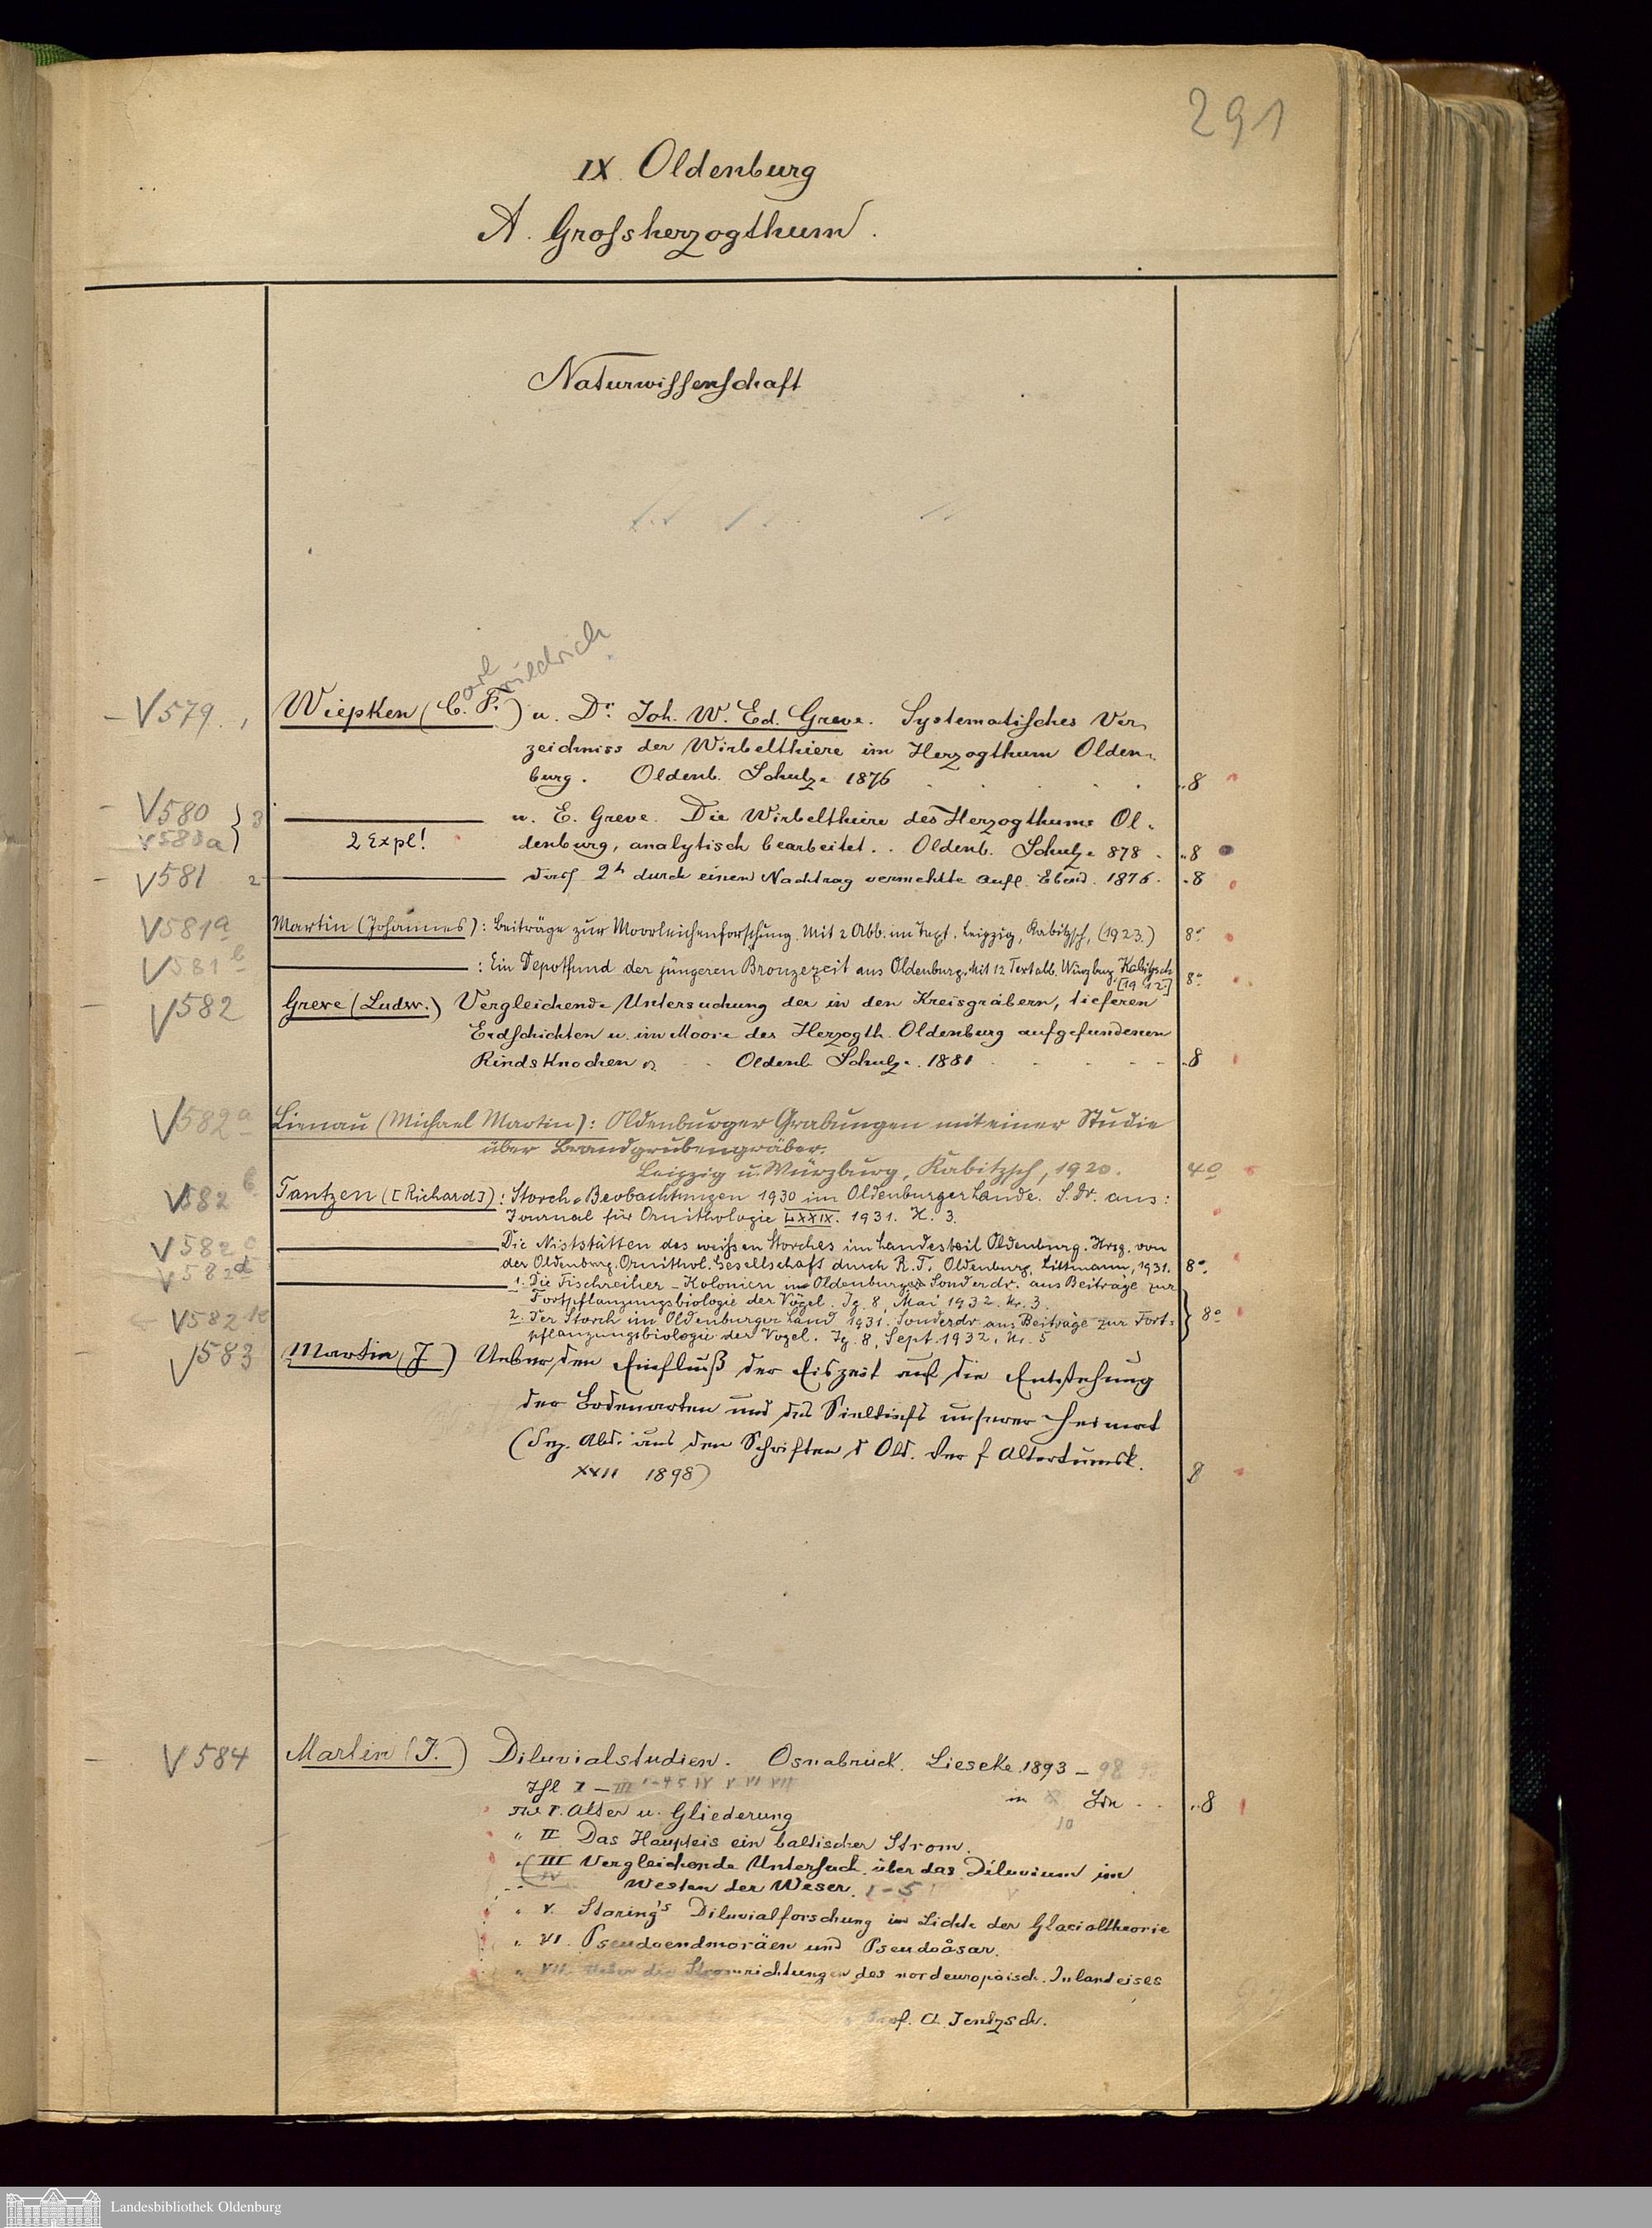 291
IX. Oldenburg
A. Grossherzogthum.
Naturwissenschaft
arl riedrich
V579. 1 Wiepken (C. F.) u. Dr. Joh. W. Ed. Greve. Systematisches Ver-
zeichniss der Wirbelthiere im Herzogthum Olden-
burg. Oldenb. Schulze 1876 8
V580 3 u. E. Greve. Die Wirbelthiere des Herzogthums Ol-
V580a 2 Expl! denburg, analytisch bearbeitet. Oldenb. Schulze 878 8
V581 2 2te durch einen Nachtrag vermehrte Aufl. Ebend. 1876. 8
V581a Martin (Johannes): Beiträge zur Moorleichenforschung. Mit 2 Abb. im Text. Leipzig, Kabitzsch, (1923.) 8°
V581b : Ein Depotfund der jüngeren Bronzezeit aus Oldenburg. Mit 12 Textabb. Würzburg, Kabitzsch
[1912.] 8°
V582 Greve (Ludw.) Vergleichende Untersuchung der in den Kreisgräbern, tieferen
Erdschichten u. im Moore des Herzogth. Oldenburg aufgefundenen
Rindsknochen Oldenb. Schulze. 1881 8
V582a Lienau (Michael Martin): Oldenburger Grabungen mit einer Studie
über Brandgrubengräber.
Leipzig u. Würzburg, Kabitzsch, 1920. 4°
V582b Tantzen ([Richard]): Storch-Beobachtungen 1930 im Oldenburger Lande. S. dr. aus:
Journal für Ornithologie LXXIX. 1931. H. 3.
V582c Die Niststätten des weißen Storches im Landesteil Oldenburg. Hrsg. von
der Oldenburg. Ornithol. Gesellschaft durch R. T. Oldenburg, Littmann, 1931. 8°
V582d 1. Die Fischreiher-Kolonien im Oldenburger Sonderdr. aus Beiträge zur
Fortpflanzungsbiologie der Vögel. Jg. 8, Mai 1932. Nr. 3.
V582 2. Der Storch im Oldenburger Land 1931. Sonderdr. aus Beiträge zur Fort- 8°
pflanzungsbiologie der Vögel. Jg. 8, Sept. 1932, Nr. 5
V583 Martin (J) Ueber den Einfluß der Eiszeit auf die Entstehung
der Bodenarten und des unserer Heimat
aus den Schriften d Old. Ver f Altertumsk.
XXII 1898) 8
V584 Martin (J.) Diluvialstudien. Osnabrück. Liesecke. 1893 - 98
Thl I - III
in 8
10
I. Alter u. Gliederung
" II Das Haupteis ein baltischer Strom.
" III Vergleichende Untersuch. über das Diluvium im
IV Westen der Weser. 1-5
" V. Staring's Diluvialforschung im Lichte der Glacialtheorie
" VI. Pseudoendmoräen und Pseudoåsar.
" VII. Ueber die Stromrichtungen des nordeuropäisch. Inlandeises
Prof. A. Jentzsch.
Landesbibliothek Oldenburg